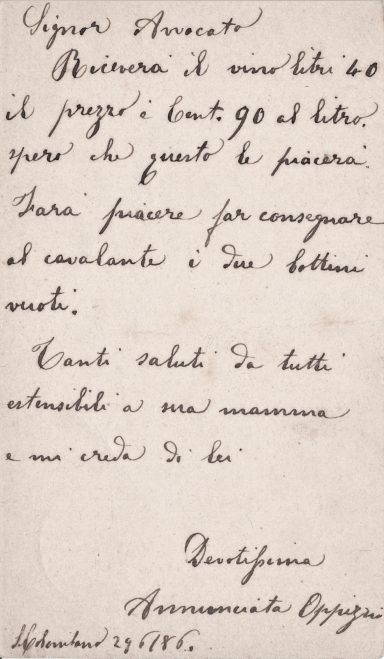 Signor Avvocato
Riceverà il vino litri 40
il prezzo è Cent. 90 al litro.
spero che questo le piacerà
Farà piacere far consegnare
al cavalante i due bottini
vuoti.
Tanti saluti da tutti
estensibili a sua mamma
e mi creda di lei
Devotissima
Annunciata Oppizzi
S. Colombano 29 6/86.